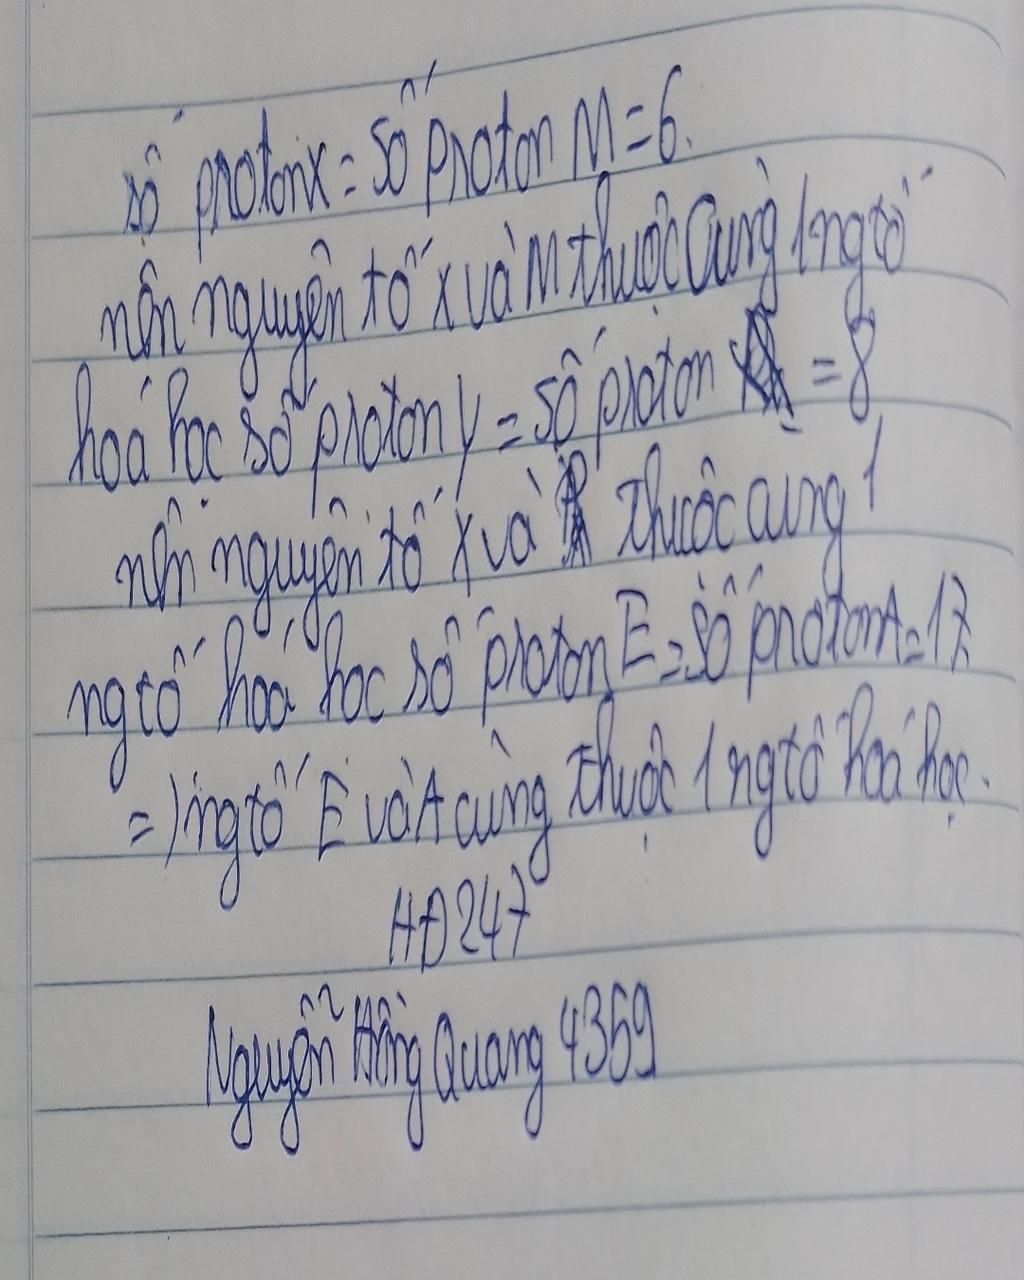 số protonx = số proton M = 6.
nên nguyên tố x và M thuộc cùng 1 ng tố
hoá học số proton y = số proton = 8
nên nguyên tố x và thuộc cung 1
ng tố hoá học số proton E = số proton A = 17.
=) ng tố E và A cùng thuộc 1 ng tố hoá học.
HĐ247
Nguyễn Hồng Quang 4369